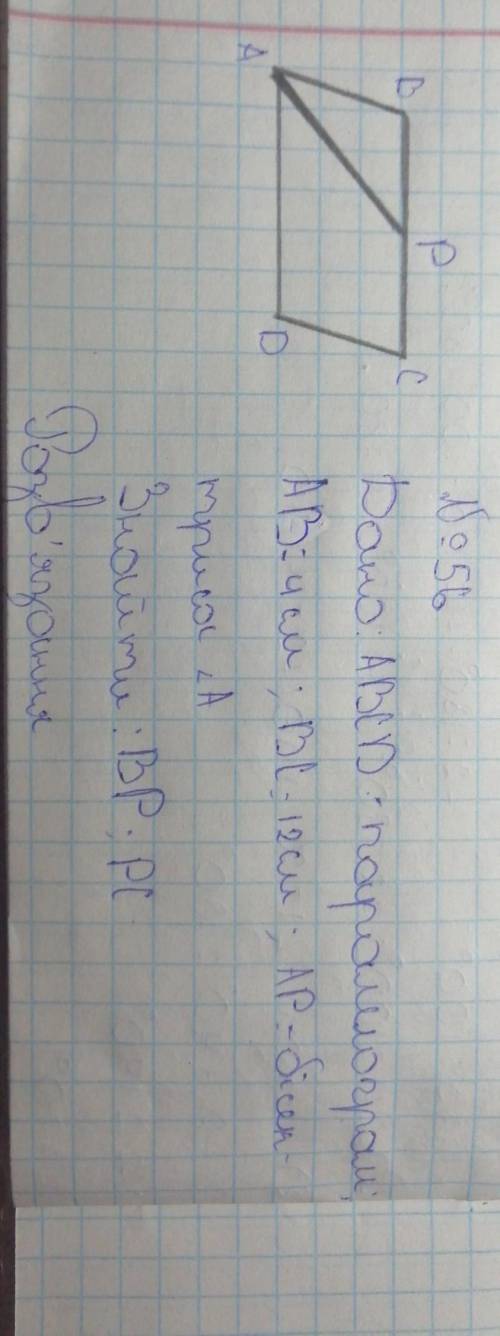 A B P C D
№ 56
Дано: ABCD - паралелограм;
AB = 4 см; BC = 12 см; AP - бісек-
триса ∠A
Знайти: BP; PC
Розв'язання